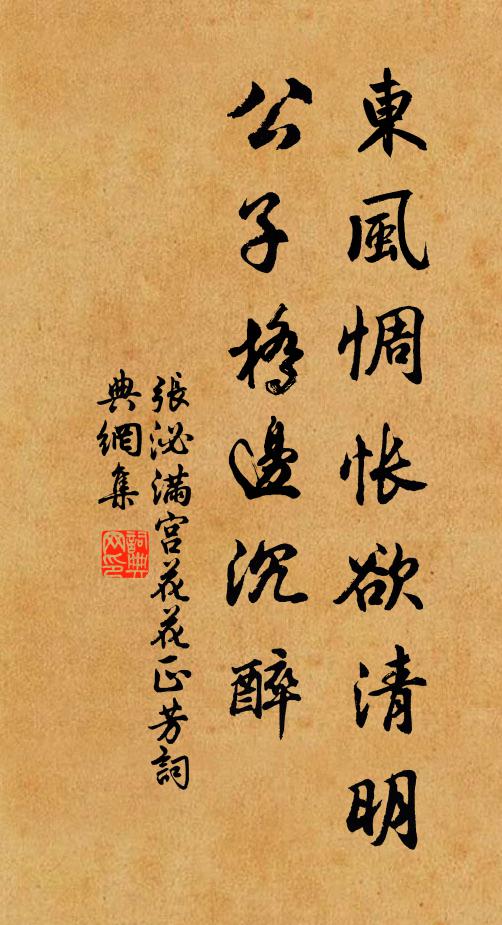 東風惆悵欲清明
公子橋邊沉醉
張泌滿宮花花正芳詞
典網集
詞典
网印